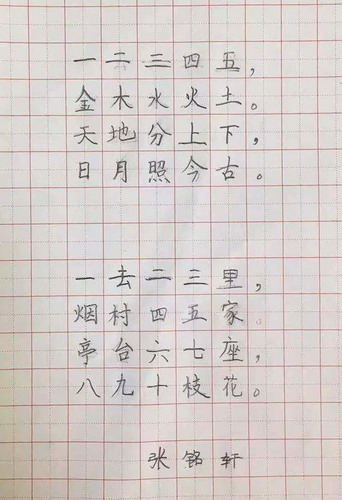 一二三四五，
金木水火土。
天地分上下，
日月照今古。
一去二三里，
烟村四五家。
亭台六七座，
八九十枝花。
张铭轩